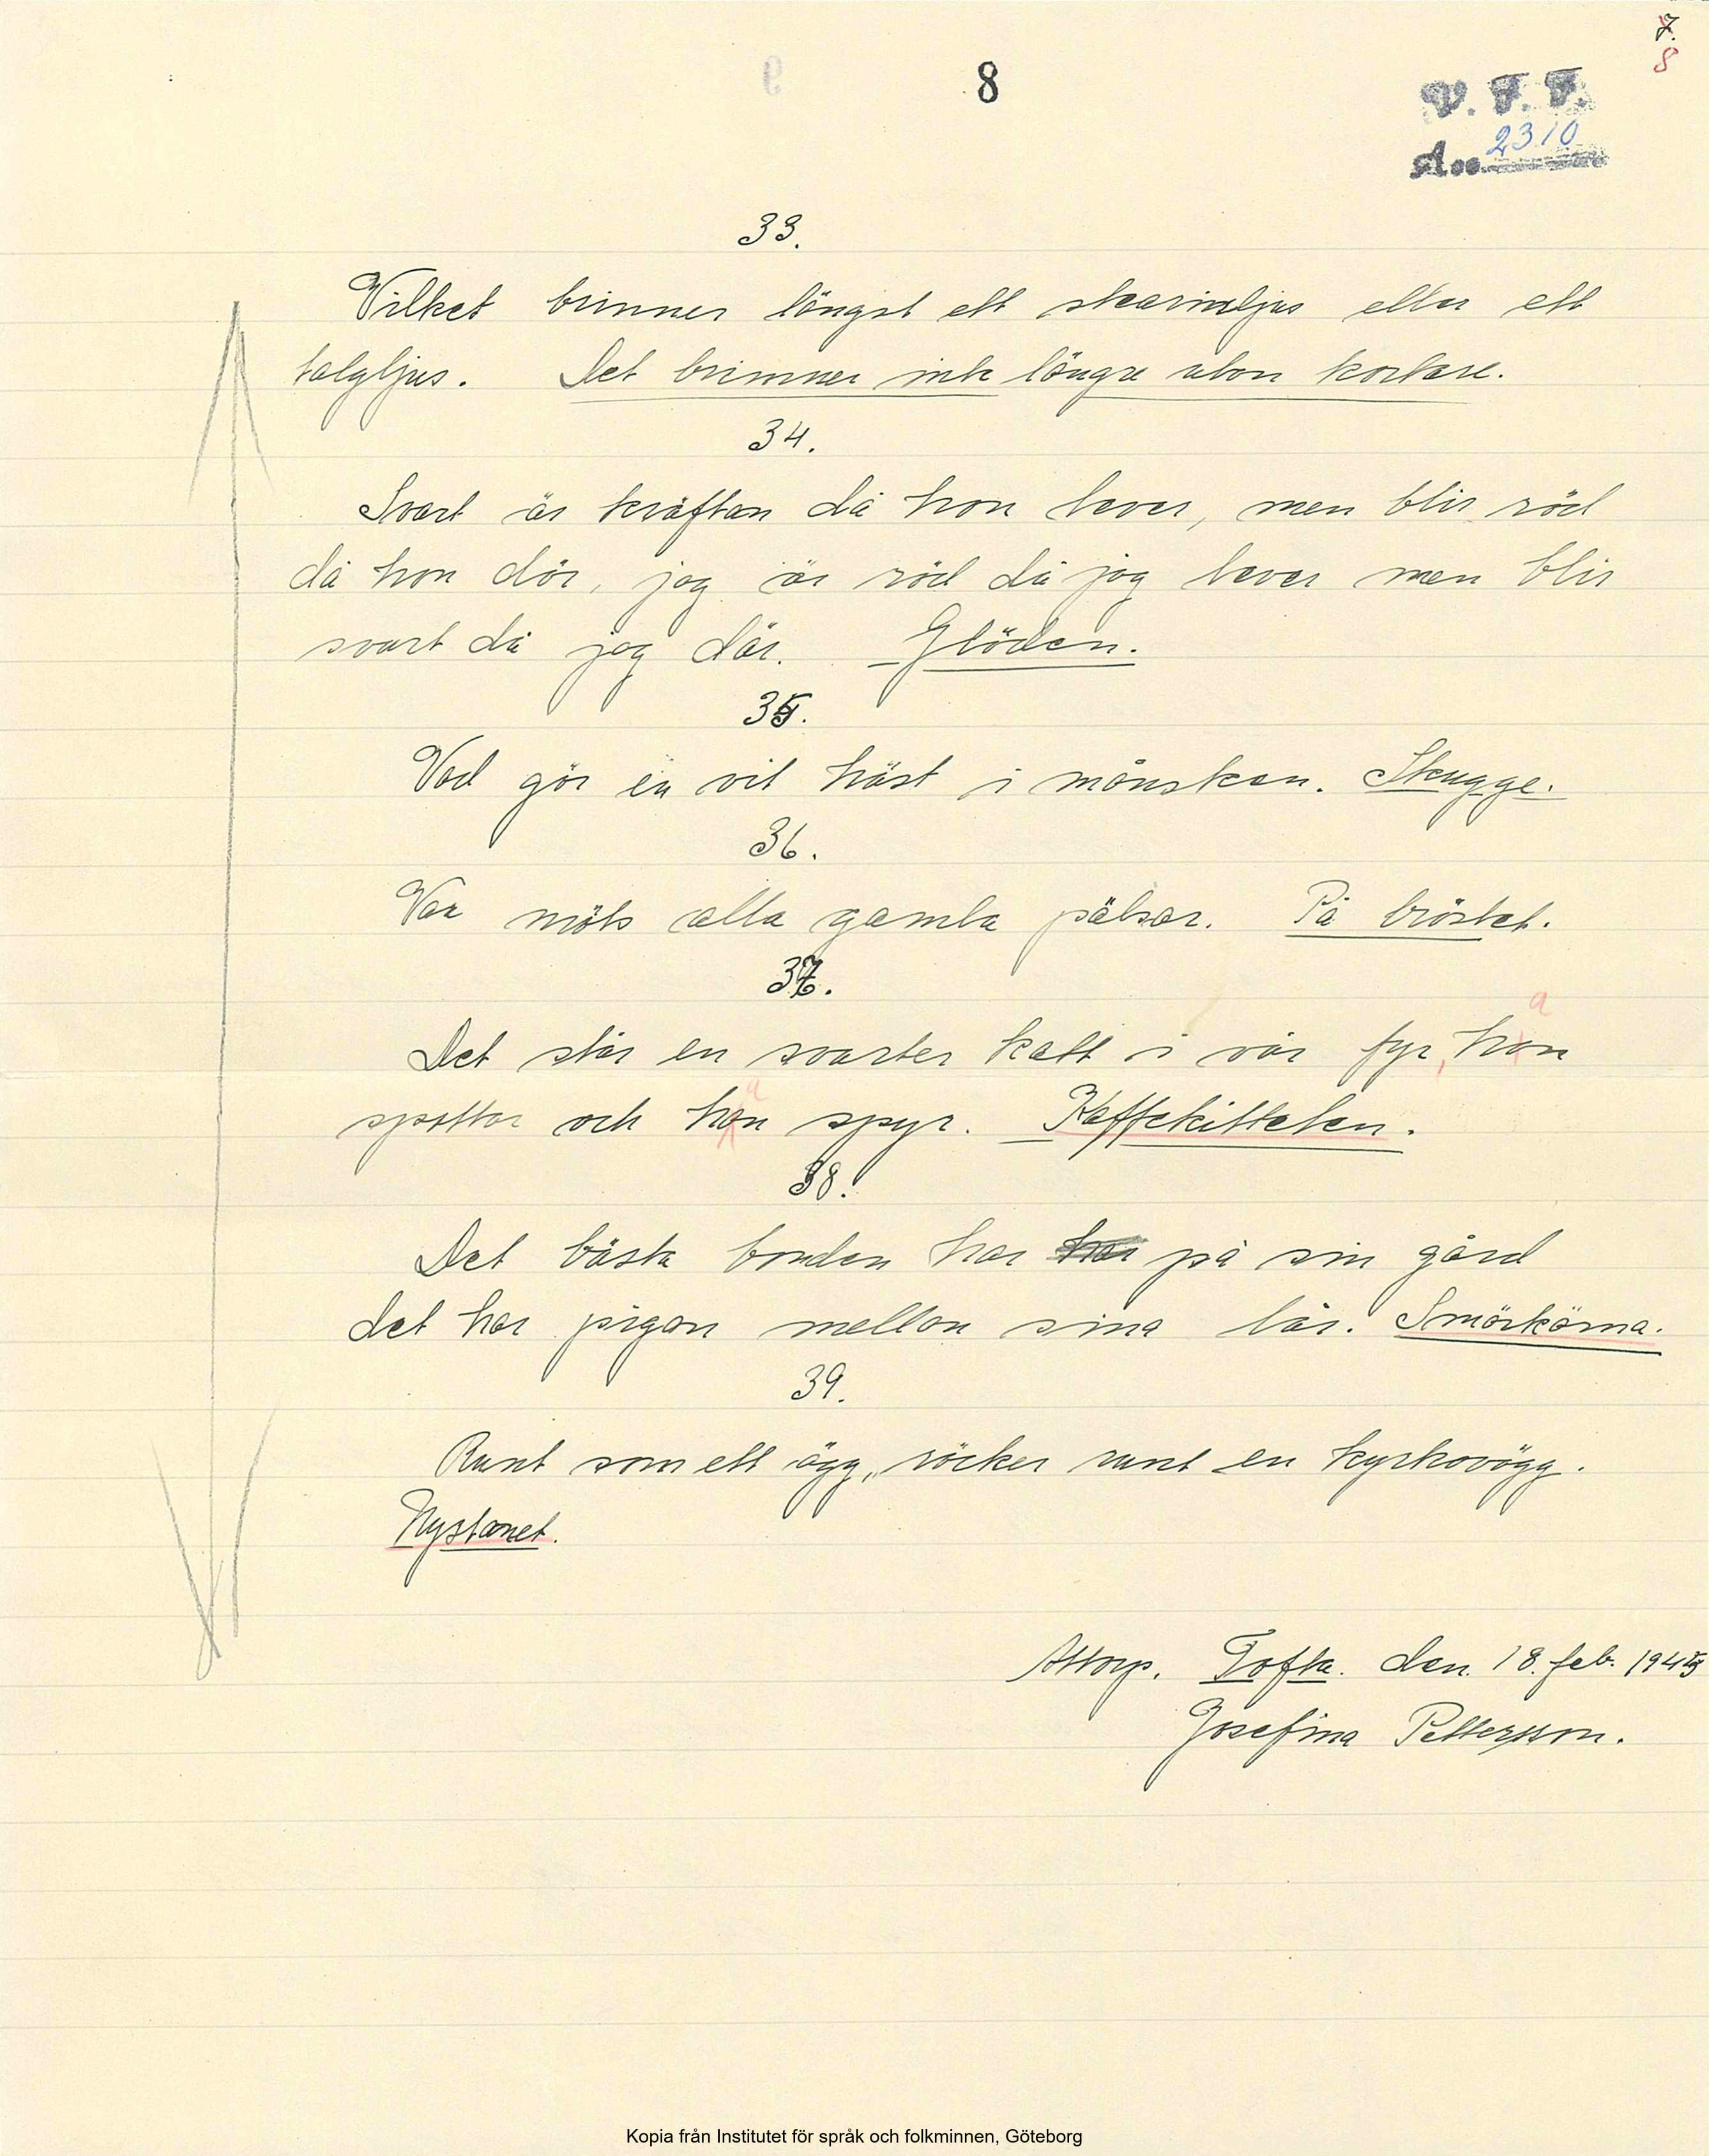 7.
8
8
V. F. F.
2310
Acc.
33.
Vilket brinner längst ett stearinljus eller ett
talgljus. Det brinner inte längre utan kortare.
34.
Svart är kräftan då hon lever, men blir röd
då hon dör, jag är röd då jag lever men blir
svart då jag dör. Glöden.
35.
Vad gör en vit häst i månsken. Skugge.
36.
Var möts alla gamla pälsar. På bröstet.
37.
Det står en svarter katt i vår fyr, han
spottar och han spyr. Kaffekittelen.
38.
Det bästa bonden har har på sin gård
det har pigan mellan sina lår. Smörkärna.
39.
Runt som ett ägg, räcker runt en kyrkovägg.
Nystanet.
Attorp. Tofta. den. 18. feb. 1945
Josefina Pettersson.
Kopia från Institutet för språk och folkminnen, Göteborg